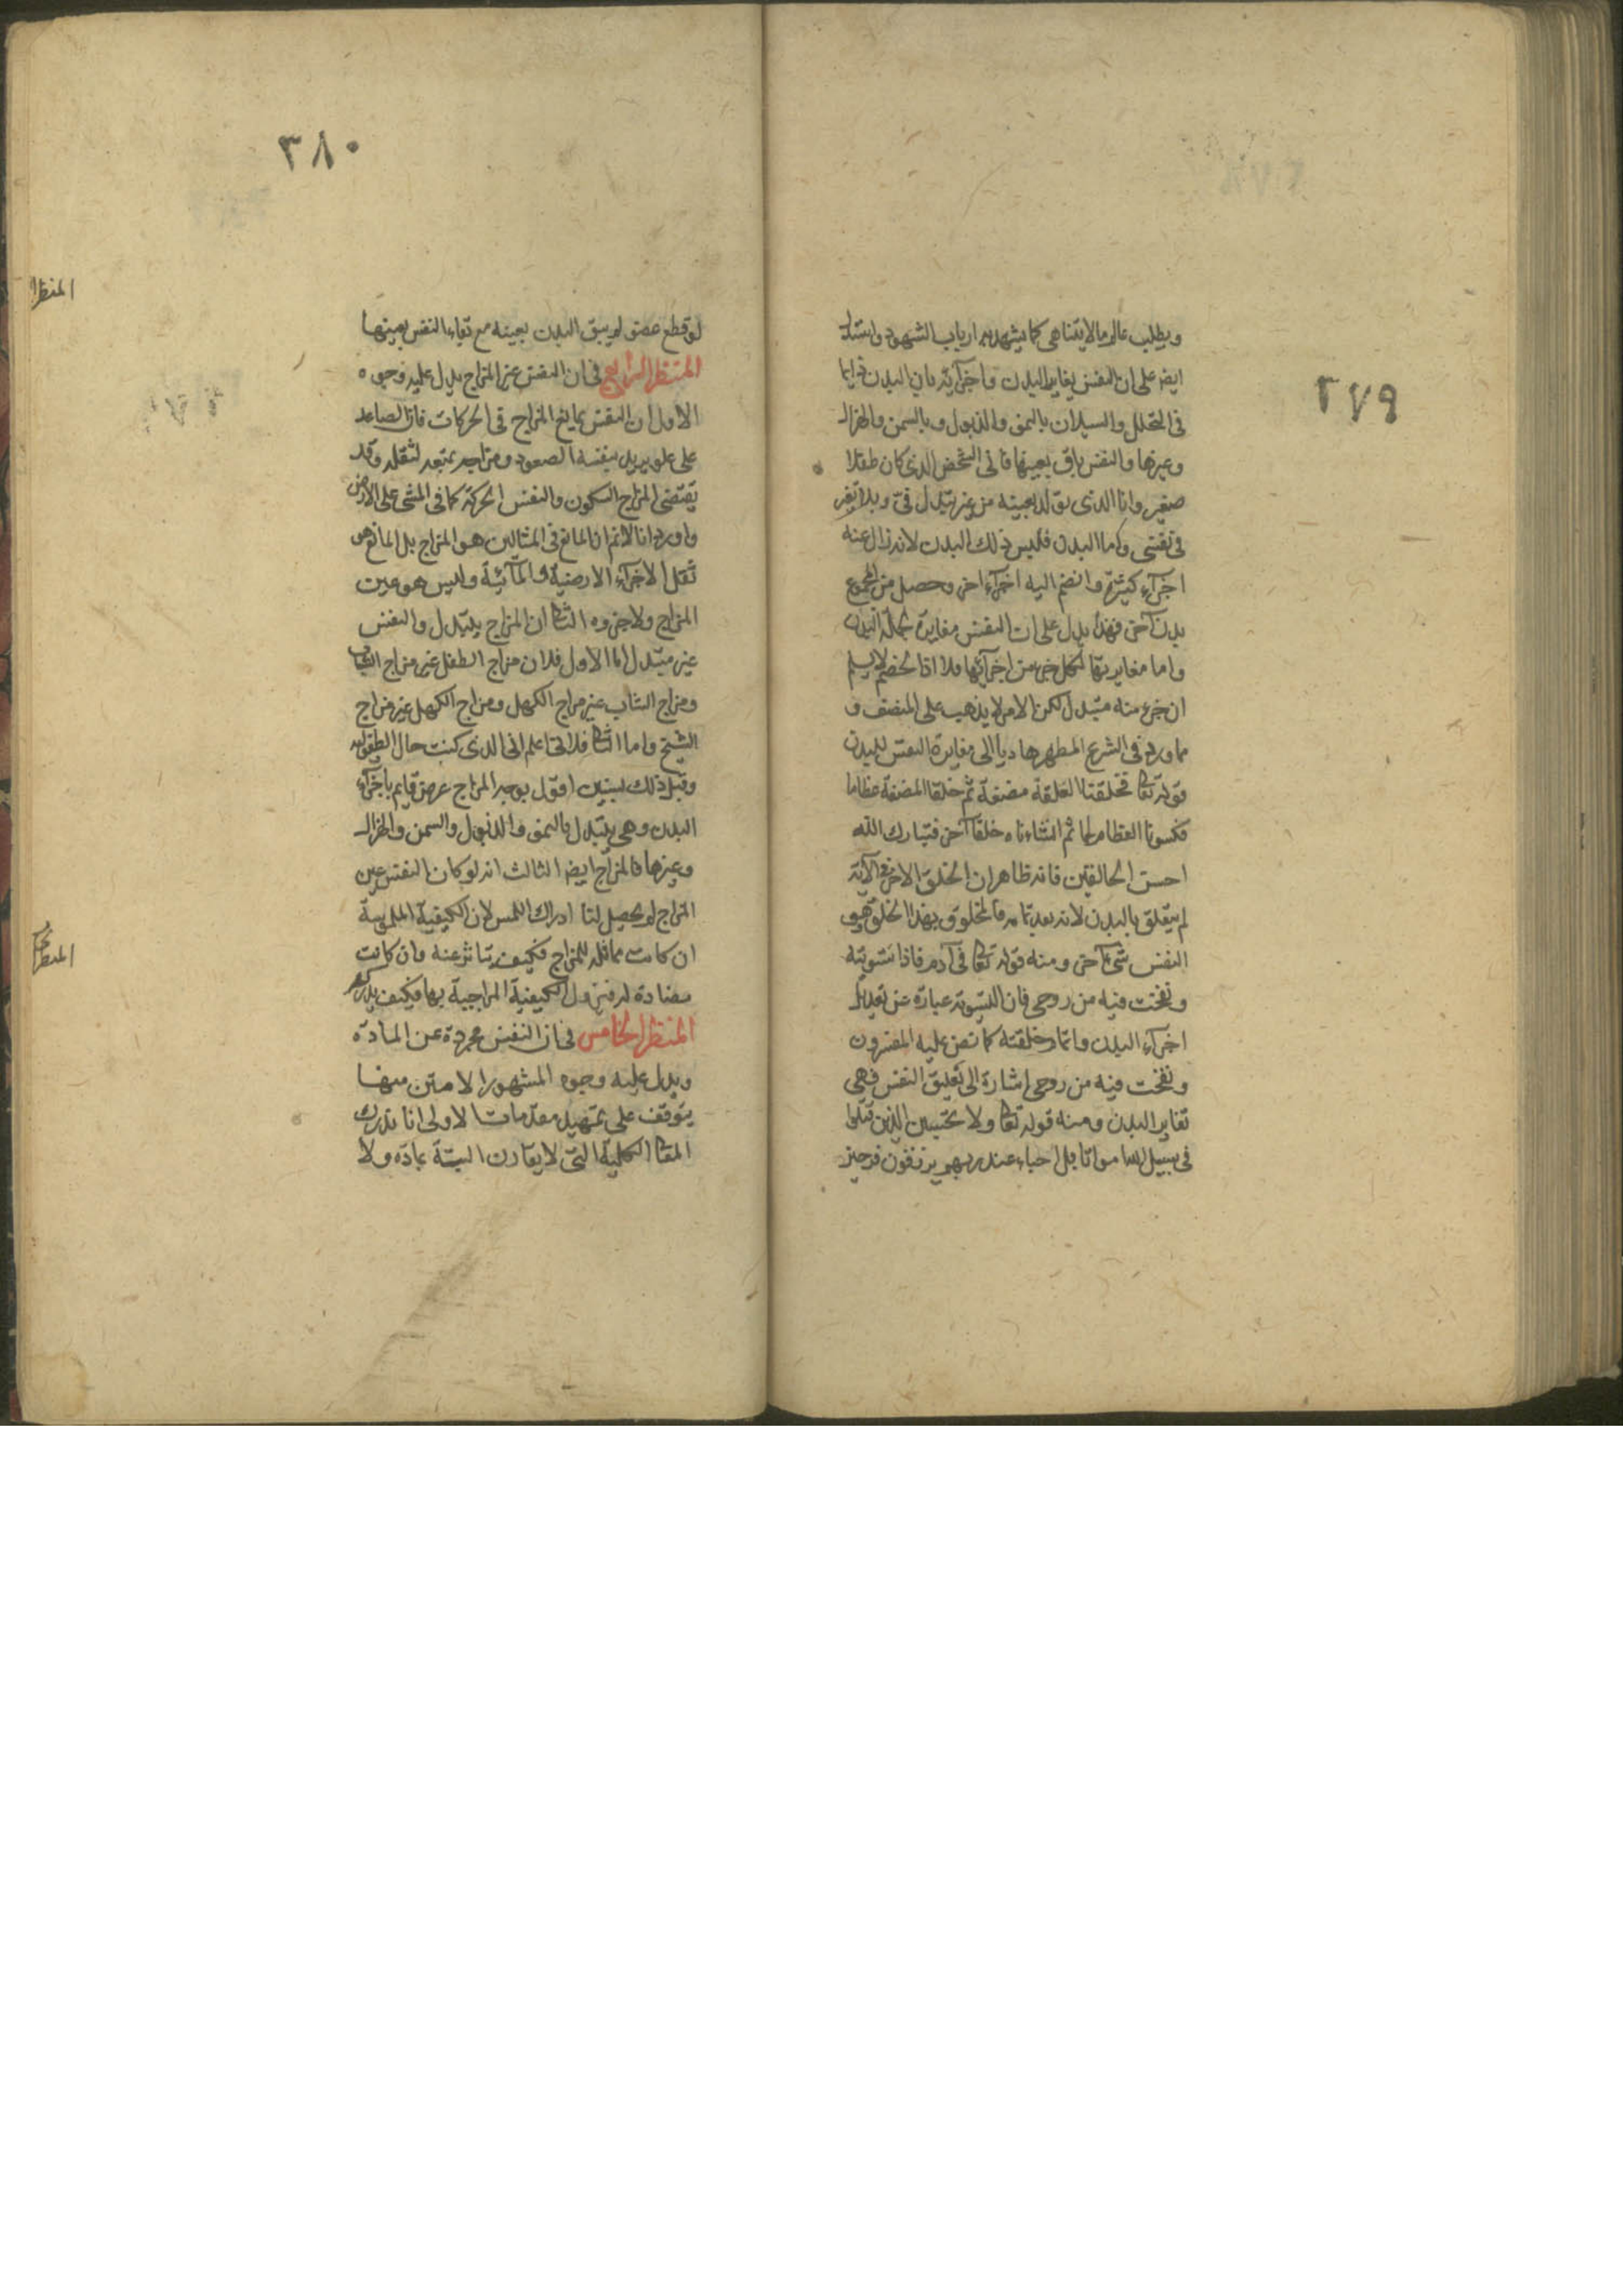 ٢٧٩
ويطلب عالم ما لا يتناهى كما يشهد به ارباب الشهود واستدل
ايضا على ان النفس يغاير البدن واجزائه بان البدن دايما
فى التحلل والسيلان بالنمو والذبول وبالسمن والهزال
وغيرها والنفس باق بعينها فانى الشخص الذى كان طفلا
صغير وانا الذى تولد بعينه من غير تبدل فىّ وبلا تغير
فى نفسى واما البدن فليس ذلك البدن لانه زال عنه
اجزاء كثيرة وانضم اليه اجزاء اخر وحصل من المجموع
بدن آخر فهذا يدل على ان النفس مغايرة لجملة البدن
واما مغايرتها لكل جزء من اجزائها فلا اذا الخصم لا يسلم
ان جزء منه متبدل لكن الامر لا يذهب على المنصف و
مما ورد فى الشرع المطهر هاديا الى مغايرة النفس للبدن
قوله تعا فخلقنا العلقة مضغة ثم خلقنا المضغة عظاما
فكسونا العظام لحما ثم انشاءناه خلقا آخر فتبارك الله
احسن الخالقين فانه ظاهر ان الخلق الاخر فى الآية
لم يتعلق بالبدن لانه بعد تمامه فالمخلوق بهذا الخلق هو
النفس شئ آخر ومنه قوله تعا فى آدم فاذا سويته
ونفخت فيه من روحى فان التسوية عبارة عن تعديل
اجزاء البدن واتمام خلقته كما نص عليه المفسرون
ونفخت فيه من روحى اشارة الى تعليق النفس فهى
تغاير البدن ومنه قوله تعا ولا تحسبن الذين قتلوا
فى سبيل الله امواتا بل احياء عند ربهم يرزقون فرحين
٣٨٠
لو قطع عضو لم يبق البدن بعينه مع بقاء النفس بعينها
المنظر الرابع فى ان النفس غير المزاج يدل عليه وجوه
الاول ان النفس يمانع المزاج فى الحركات فان الصاعد
على علو يريد بنفسه الصعود ومزاجه يمنعه لثقله وقد
يقتضى المزاج السكون والنفس الحركة كما فى المشى على الارض
واورد انا لانم ان المانع فى المثالين هو المزاج بل المانع هو
ثقل الاجزاء الارضية والمآئية وليس هو عين
المزاج ولا جزوه الثا ان المزاج يتبدل والنفس
غير متبدل اما الاول فلان مزاج الطفل غير مزاج الشاب
ومزاج الشاب غير مزاج الكهل ومزاج الكهل غير مزاج
الشيخ واما الثا فلانى اعلم انى الذى كنت حال الطفولية
وقبل ذلك بسنين اقول بوجه المزاج عرض قايم باجزاء
البدن وهى يتبدل بالنمو والذبول والسمن والهزال
وغيرها فالمزاج ايضا الثالث انه لو كان النفس عين
المزاج لم يحصل لنا ادراك اللمس لان الكيفية الملموسة
ان كانت مماثلة للمزاج فكيف يتاثر عنه وان كانت
مضادة له فيزول الكيفية المزاجية بها فكيف يدركه
المنظر الخامس فى ان النفس مجردة عن المادة
ويدل عليه وجوه المشهور الامتن منها
يتوقف على تمهيد مقدمات الاولى انا ندرك
المعا الكلية التى لا يقارن البتة بمادة ولا
المنظر
المنظر